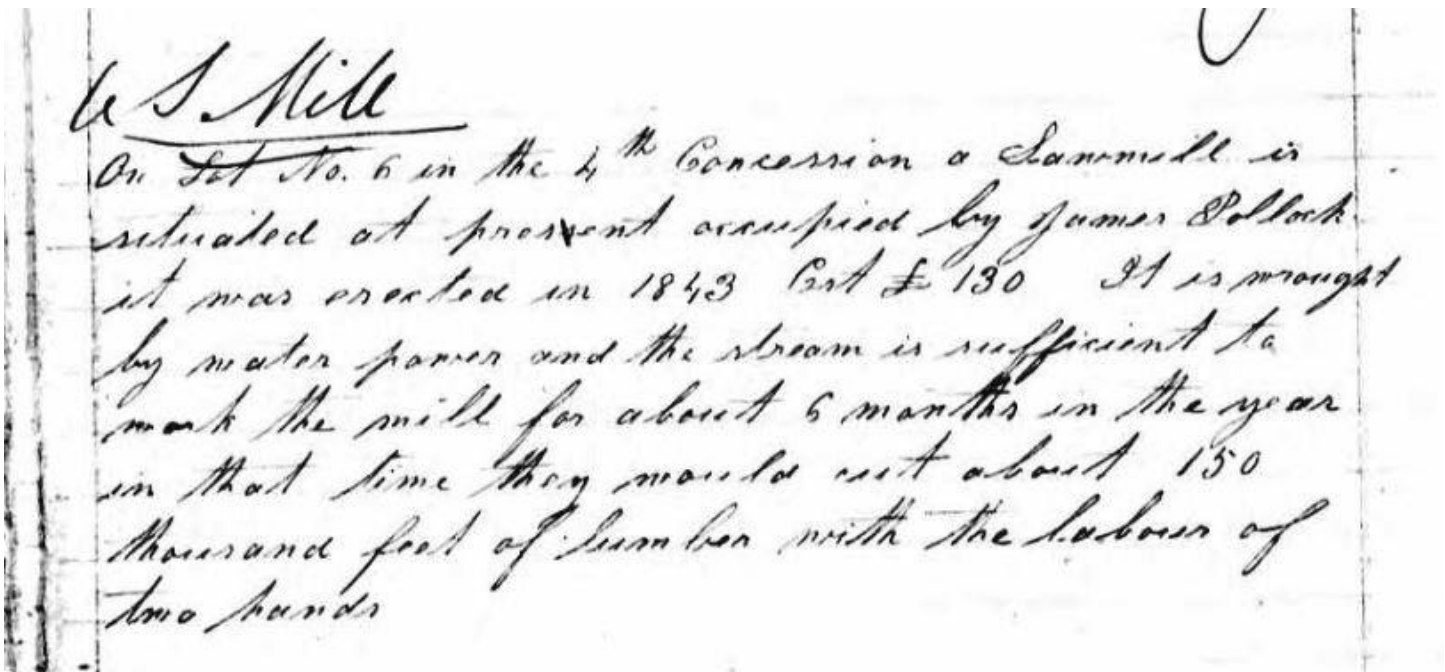 6 S. Mill
On Lot No. 6 in the 4th Concession a Sawmill is
situated at present occupied by James Pollock
it was erected in 1843 Cost £ 130 It is wrought
by water power and the stream is sufficient to
work the mill for about 6 months in the year
in that time they would cut about 150
thousand feet of lumber with the labour of
two hands